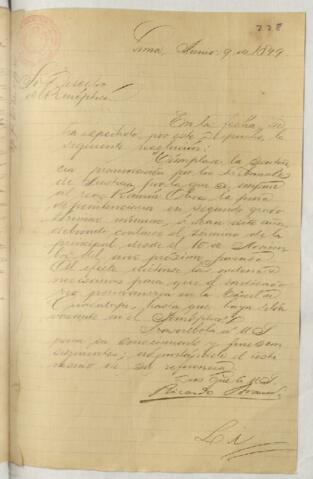 228
Lima, Junio 9 de 1899
Sr. Director
del Panóptico
En la fecha, se
ha expedido, por este Despacho, la
siguiente resolución:
"Cúmplase la senten
cia pronunciada por los tribunales
de Justicia por la que se impone
al reo Ramón la pena
de penitenciaria en segundo grado
término mínimo, ó sean siete años,
debiendo contarse el término de la
principal, desde el 10 de Noviem
bre del año próximo pasado
Al efecto díctense las órdenes
necesarias para que el
permanezca en la Cárcel de
hasta que haya
vacante en el Panóptico"
Trascríbola á US
para su conocimiento y fines con
siguientes; adjuntándole el testi
monio de su referencia
Dios gue á US.
Ricardo